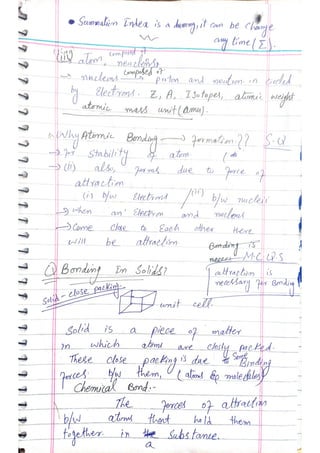 • Summation Index is a dummy, it can be change
any time (Σ).
(iii) Atom, composed of neucleons,
→ nucleus composed of proton and neutron is circled
by Electrons. Z, A, Isotopes, atomic weight
atomic mass unit (amu).
Why Atomic Bonding → formation ?? S.Q
→ For Stability of atom
→ (ii) also, forms due to force of
attraction
(i) b/w Electrons / (ii) b/w nucleii
→ when an Electron and nucleus
→ Come close to Each other there
will be attraction
Bonding is
M.C.Q.S
attraction is
necessary for Bonding
Q Bonding In Solids?
Solid - close packing
unit cell.
Solid is a piece of matter
in which atoms are closly packed.
These close packing is due to Some Binding
forces b/w them, (atoms & molecules)
Chemical Bond:-
The forces of attraction
b/w atoms that hold them
together in a Substance.